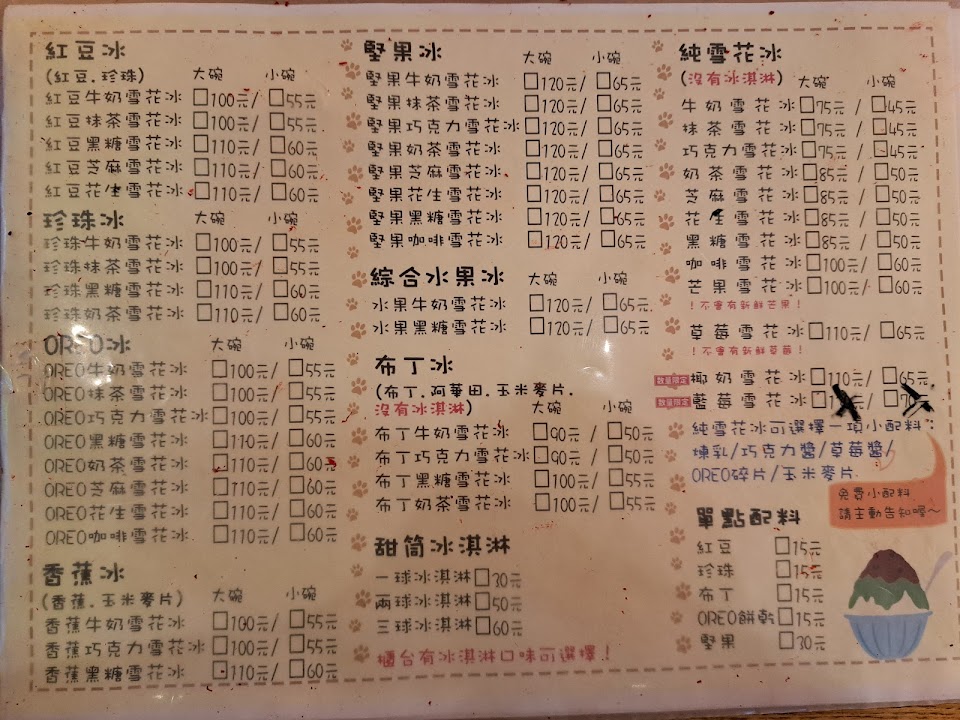 紅豆冰
(紅豆.珍珠) 大碗 小碗
紅豆牛奶雪花冰 □100元/ □55元
紅豆抹茶雪花冰 □100元/ □55元
紅豆黑糖雪花冰 □110元/ □60元
紅豆芝麻雪花冰 □110元/ □60元
紅豆花生雪花冰 □110元/ □60元
珍珠冰 大碗 小碗
珍珠牛奶雪花冰 □100元/ □55元
珍珠抹茶雪花冰 □100元/ □55元
珍珠黑糖雪花冰 □110元/ □60元
珍珠奶茶雪花冰 □110元/ □60元
OREO冰 大碗 小碗
OREO牛奶雪花冰 □100元/ □55元
OREO抹茶雪花冰 □100元/ □55元
OREO巧克力雪花冰 □100元/ □55元
OREO黑糖雪花冰 □110元/ □60元
OREO奶茶雪花冰 □110元/ □60元
OREO芝麻雪花冰 □110元/ □60元
OREO花生雪花冰 □110元/ □60元
OREO咖啡雪花冰 □110元/ □60元
香蕉冰
(香蕉.玉米麥片) 大碗 小碗
香蕉牛奶雪花冰 □100元/ □55元
香蕉巧克力雪花冰 □100元/ □55元
香蕉黑糖雪花冰 □110元/ □60元
堅果冰 大碗 小碗
堅果牛奶雪花冰 □120元/ □65元
堅果抹茶雪花冰 □120元/ □65元
堅果巧克力雪花冰 □120元/ □65元
堅果奶茶雪花冰 □120元/ □65元
堅果芝麻雪花冰 □120元/ □65元
堅果花生雪花冰 □120元/ □65元
堅果黑糖雪花冰 □120元/ □65元
堅果咖啡雪花冰 □120元/ □65元
綜合水果冰 大碗 小碗
水果牛奶雪花冰 □120元/ □65元
水果黑糖雪花冰 □120元/ □65元
布丁冰
(布丁.阿華田.玉米麥片.
沒有冰淇淋) 大碗 小碗
布丁牛奶雪花冰 □90元 / □50元
布丁巧克力雪花冰 □90元 / □50元
布丁黑糖雪花冰 □100元/ □55元
布丁奶茶雪花冰 □100元/ □55元
甜筒冰淇淋
一球冰淇淋 □30元
兩球冰淇淋 □50元
三球冰淇淋 □60元
櫃台有冰淇淋口味可選擇!
純雪花冰
(沒有冰淇淋) 大碗 小碗
牛奶雪花冰 □75元 / □45元
抹茶雪花冰 □75元 / □45元
巧克力雪花冰 □75元 / □45元
奶茶雪花冰 □85元 / □50元
芝麻雪花冰 □85元 / □50元
花生雪花冰 □85元 / □50元
黑糖雪花冰 □85元 / □50元
咖啡雪花冰 □100元/ □60元
芒果雪花冰 □100元/ □60元
!不會有新鮮芒果!
草莓雪花冰 □110元/ □65元
!不會有新鮮草莓!
數量限定 椰奶雪花冰 □110元/ □65元
數量限定 藍莓雪花冰
純雪花冰可選擇一項小配料:
煉乳/巧克力醬/草莓醬/
OREO碎片/玉米麥片.
免費小配料
請主動告知喔~
單點配料
紅豆 □15元
珍珠 □15元
布丁 □15元
OREO餅乾 □15元
堅果 □30元